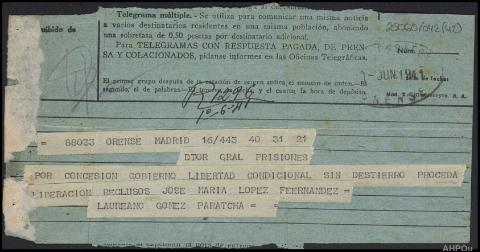 Telegrama múltiple. - Se utiliza para comunicar una misma noticia
a varios destinatarios residentes en una misma población, abonando
una sobretasa de 0,50 pesetas por destinatario adicional.
Para TELEGRAMAS CON RESPUESTA PAGADA, DE PREN-
SA Y COLACIONADOS, pídanse informes en las Oficinas Telegráficas.
cibido de
Núm.
El primer grupo después de la estación de origen indica el número de orden. - El
segundo, el de palabras. - El y el cuarto, la hora de depósito.
JUN 1941
de fecha
ORENSE
= 88033 ORENSE MADRID 16/443 40 31 21
DTOR GRAL PRISIONES
POR CONCESION GOBIERNO LIBERTAD CONDICIONAL SIN DESTIERRO PROCEDA
LIBERACION RECLUSOS JOSE MARIA LOPEZ FEERNANDEZ =
LAUREANO GOMEZ PARATCHA =
AHPOu